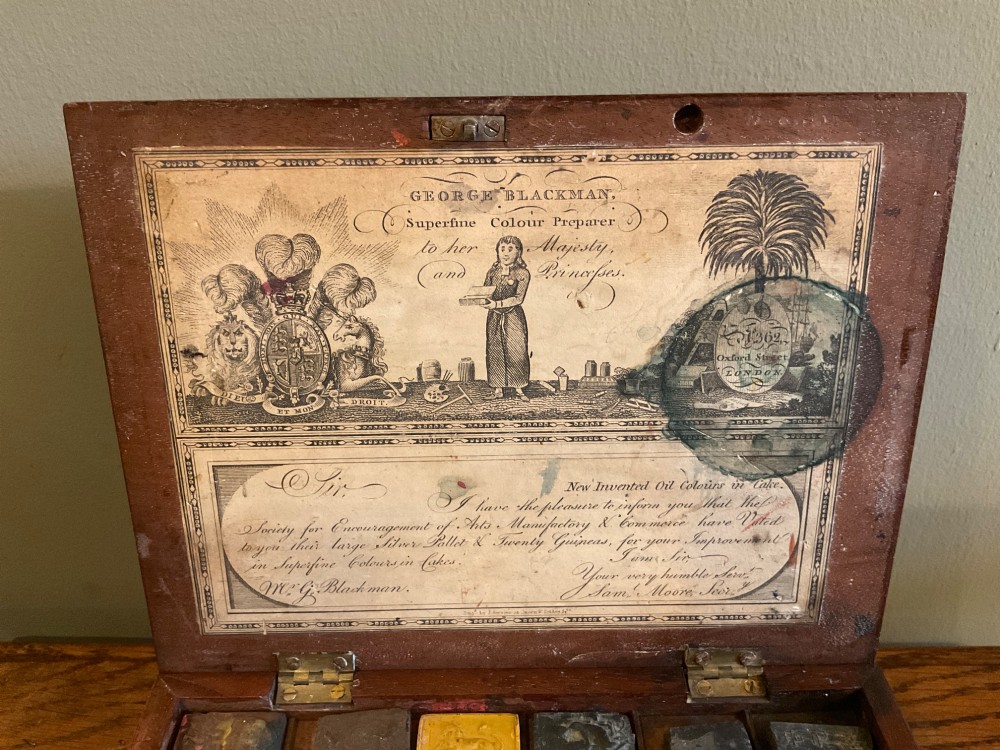 GEORGE BLACKMAN,
Superfine Colour Preparer
to her Majesty,
and Princesses.
DIEU
ET MON
DROIT.
No. 362
Oxford Street
LONDON.
Sir,
New Invented Oil Colours in Cake.
I have the pleasure to inform you that the
Society for Encouragement of Arts Manufactory & Commerce have Voted
to you their large Silver Pallet & Twenty Guineas, for your Improvement
in Superfine Colours in Cakes.
I am Sir
Your very humble Servt.
Mr. G. Blackman.
Saml. Moore, Secry.